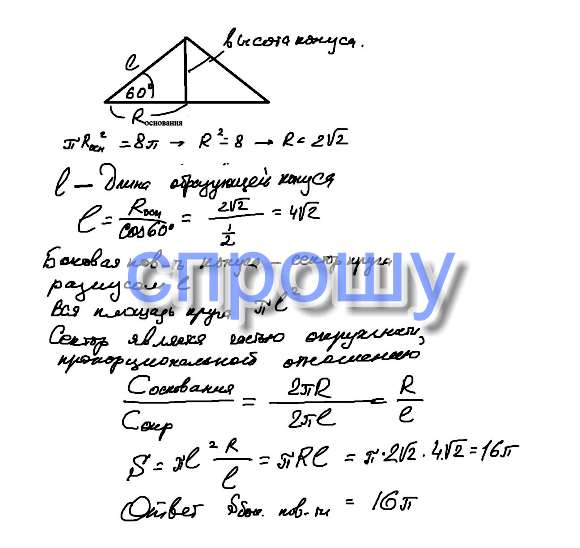 высота конуса.
l
60°
Rоснования
πRосн² = 8π → R² = 8 → R = 2√2
l — Длина образующей конуса
l = Rосн / cos60° = 2√2 / 1/2 = 4√2
Боковая пов-ть конуса — сектор круга
радиусом l
Вся площадь круга πl²
Сектор является частью окружности,
пропорциональной отношению
Cоснования / Cокр = 2πR / 2πl = R / l
S = πl² R / l = πRl = π·2√2·4√2 = 16π
Ответ Sбок. пов-ти = 16π
спрошу